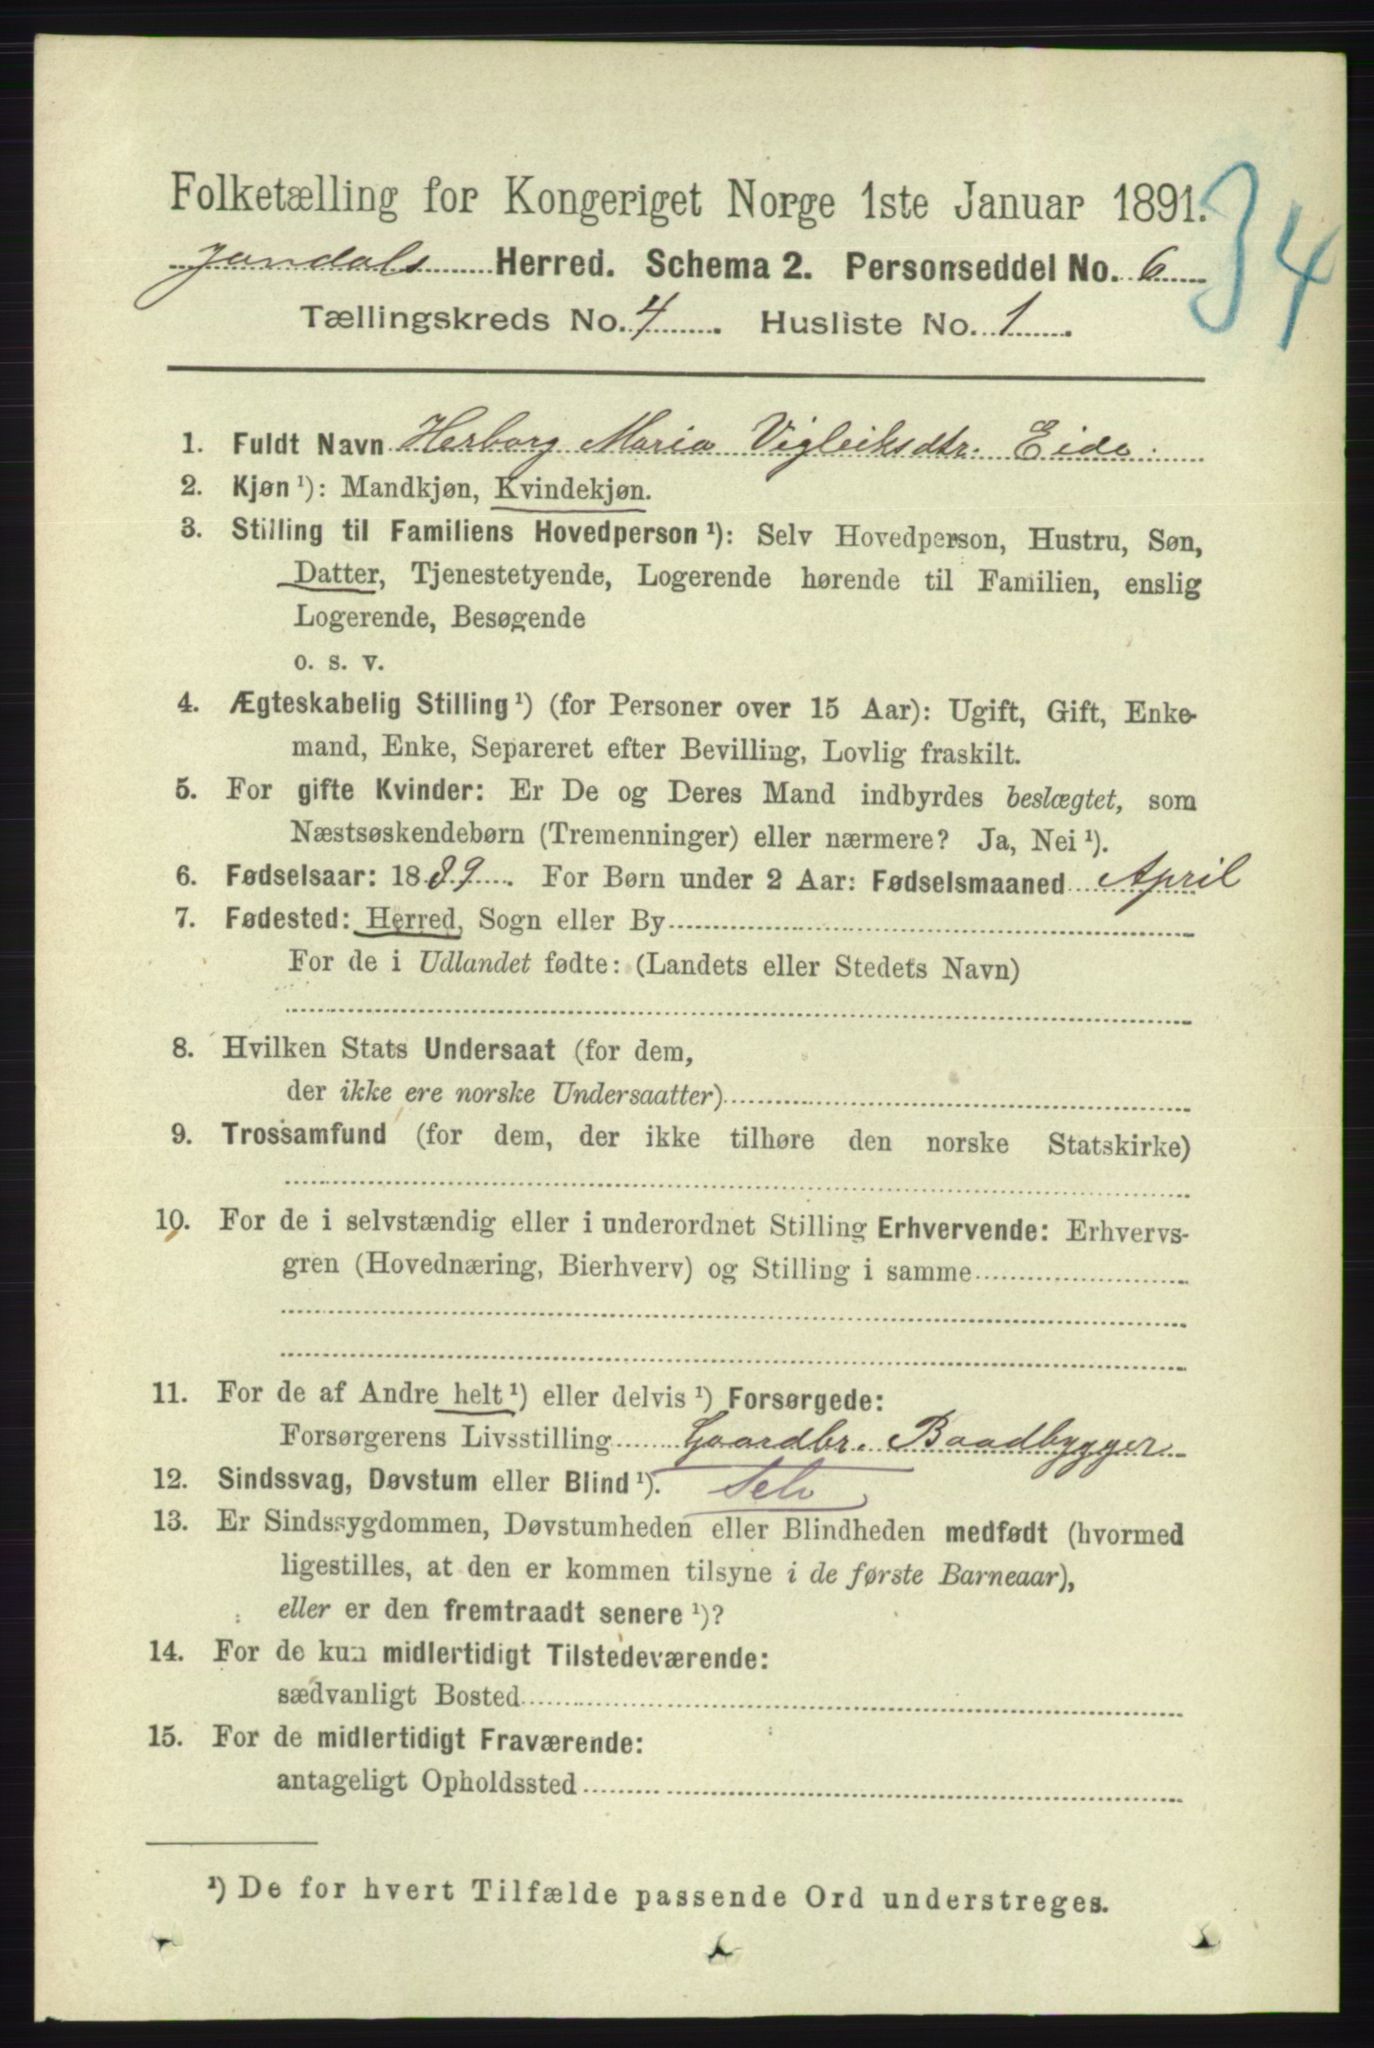 34
Folketælling for Kongeriget Norge 1ste Januar 1891.
Jondals Herred. Schema 2. Personseddel No. 6
Tællingskreds No. 4 Husliste No. 1
1. Fuldt Navn Herborg Maria Vigleiksdtr. Eide
2. Kjøn ¹): Mandkjøn, Kvindekjøn.
3. Stilling til Familiens Hovedperson ¹): Selv Hovedperson, Hustru, Søn,
Datter, Tjenestetyende, Logerende hørende til Familien, enslig
Logerende, Besøgende
o. s. v.
4. Ægteskabelig Stilling ¹) (for Personer over 15 Aar): Ugift, Gift, Enke-
mand, Enke, Separeret efter Bevilling, Lovlig fraskilt.
5. For gifte Kvinder: Er De og Deres Mand indbyrdes beslægtet, som
Næstsøskendebørn (Tremenninger) eller nærmere? Ja, Nei ¹).
6. Fødselsaar: 1889. For Børn under 2 Aar: Fødselsmaaned April
7. Fødested: Herred, Sogn eller By
For de i Udlandet fødte: (Landets eller Stedets Navn)
8. Hvilken Stats Undersaat (for dem,
der ikke ere norske Undersaatter)
9. Trossamfund (for dem, der ikke tilhøre den norske Statskirke)
10. For de i selvstændig eller i underordnet Stilling Erhvervende: Erhvervs-
gren (Hovednæring, Bierhverv) og Stilling i samme
11. For de af Andre helt ¹) eller delvis ¹) Forsørgede:
Forsørgerens Livsstilling Gaardbr. Baadbygger
12. Sindssvag, Døvstum eller Blind ¹). Selv
13. Er Sindssygdommen, Døvstumheden eller Blindheden medfødt (hvormed
ligestilles, at den er kommen tilsyne i de første Barneaar),
eller er den fremtraadt senere ¹)?
14. For de kun midlertidigt Tilstedeværende:
sædvanligt Bosted
15. For de midlertidigt Fraværende:
antageligt Opholdssted
¹) De for hvert Tilfælde passende Ord understreges.